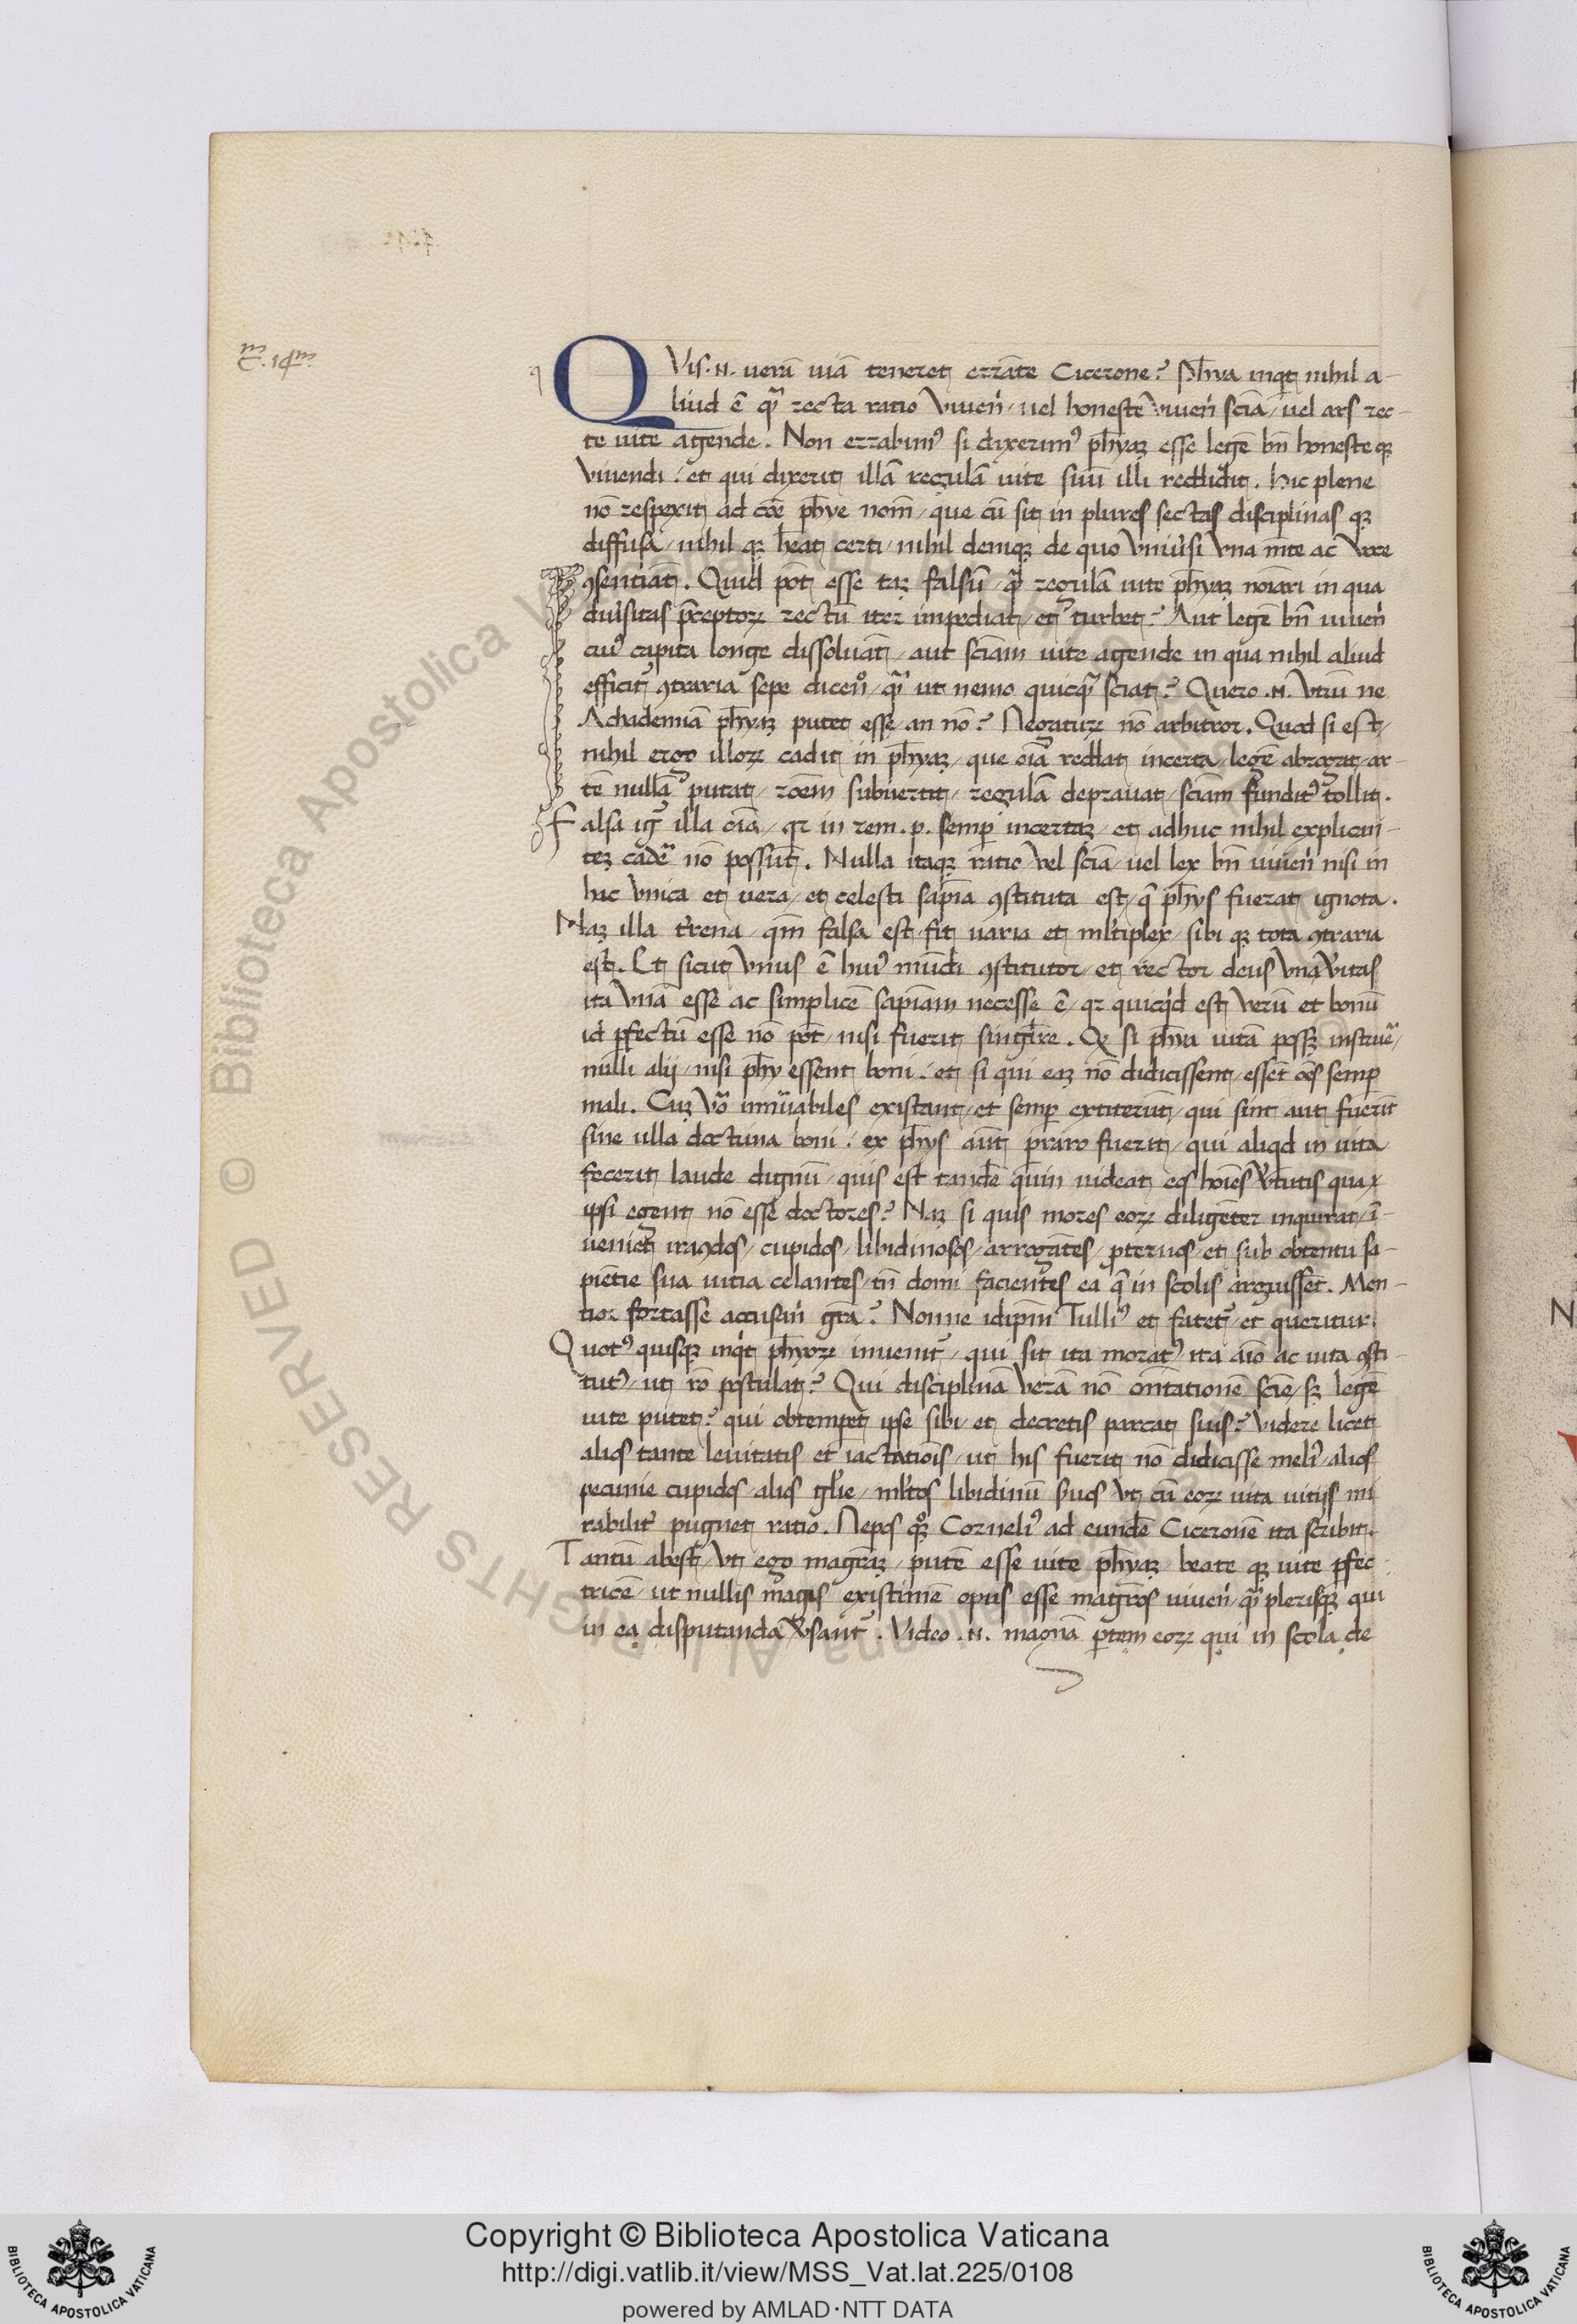 c. 14m.
QVis .n. uerā uiā teneret errāte Cicerone? Ph̄ya inqt nihil a-
liud ē qͣ recta ratio Viuen̄ / uel honeste viuen̄ sciā / uel ars rec-
te uite agende. Non errabimꝰ si dixerimꝰ ph̄yaꝫ esse legē bn̄ honesteqꝫ
viuendi. et qui dixerit illā regulā uite suū illi reddidit. hic plene
nō respexit ad cōe ph̄ye nom̄ / que cū sit in plures sectas disciplinasqꝫ
diffusa / nihilqꝫ hēat certi / nihil deniqꝫ de quo vniūsi vna mte ac voce
ꝯsentiāt. Quid pōt esse taꝫ falsū / qͣ regulā uite ph̄yaꝫ noīari in qua
diūsitas p̄ceptoꝝ rectū iter impediat / et turbet? Aut legē bn̄ uiuen̄
cuiꝰ capita longe dissoluāt / aut sciam uite agende in qua nihil aliud
efficit ꝯtraria sepe dicen̊ / qͣ ut nemo quicqͣ sciat? Quero .n. Vtrū ne
Achademiā ph̄yaꝫ putet esse / an nō? Negaturꝝ nō arbitror. Quod si est /
nihil ergo illoꝝ cadit in ph̄yaꝫ / que oīa reddat incerta / legē abrogat / ar-
tē nullā putat / rōem subuertit / regulā deprauat / sciam funditꝰ tollit.
Falsa ig̃ illa oīa / qꝛ in rem .p. semp incertaꝫ / et adhuc nihil explican-
teꝫ cadē nō possūt. Nulla itaqꝫ ratio vel sciā / uel lex bn̄ uiuen̄ nisi in
hac vnica et uera / et celesti sapīa ꝯstituta est / q̄ ph̄ys fuerat ignota.
Naꝫ illa t̄rena / qm̄ falsa est / fit uaria et ml̄tiplex / sibiqꝫ tota ꝯtraria
est. Et sicut vnus ē huiꝰ mūdi ꝯstitutor / et rector deus vna v̄itas
ita vnā esse ac simplicē sapiam necesse ē / qꝛ quicqd est verū et bonū
id ꝑfectū esse nō pōt / nisi fuerit singlare. Qꝫ si ph̄ya uitā possꝫ instruē /
nulli alij / nisi ph̄y essent boni. et si qui eaꝫ nō didicissent / essēt oēs semp
mali. Cuꝫ vō innūabiles existant / et semp extiterūt / qui sint aut fuerīt
sine ulla doctrina boni. ex ph̄ys aūt ꝑraro fuerit / qui aliqd in uita
fecerit laude dignū / quis est tandē quin uideat eos hoīes v̄tutis qua
ipsi egent nō esse doctores? Naꝫ si quis mores eoꝝ diligēter inquirat / ī-
ueniet iracūdos / cupidos / libidinosos / arrogātes / ꝓteruos / et sub obtentu sa-
piētie sua uitia celantes / tn̄ domi facientes ea q̄ in scolis arguissēt. Men-
tior fortasse accusan̄ gr̄a? Nonne idipm̄ Tulliꝰ et fatet / et queritur.
Quotꝰ quisqꝫ inqt ph̄yoꝝ inuenit / qui sit ita moratꝰ ita aīo ac uita ꝯsti-
tutꝰ / ut rō postulat? Qui disciplinā verā nō ostētationē sciē / sꝫ legē
uite putet? qui obtempet ipse sibi / et decretis pareat suis? Videre licet
alios tante leuitatis et iactatiois / ut his fuerit nō didicisse meliꝰ / alios
pecunie cupidos / alios gl̄ie / ml̄tos libidinū suos Vt cū eoꝝ uita uitijs mi
rabilitꝰ pugnet ratio. Nepos qꝫ Corneliꝰ ad eundē Ciceronē ita scribit.
Tantū abest / Vt ego magr̄aꝫ / putē esse uite ph̄yaꝫ / beateqꝫ uite ꝑfec-
tricē / ut nullis magis existimē opus esse magr̄os uiuen̄ qͣ plerisqꝫ qui
in ea disputanda v̄sant. Video .n. magnā ptem eoꝝ qui in scola de
Copyright © Biblioteca Apostolica Vaticana
http://digi.vatlib.it/view/MSS_Vat.lat.225/0108
powered by AMLAD·NTT DATA